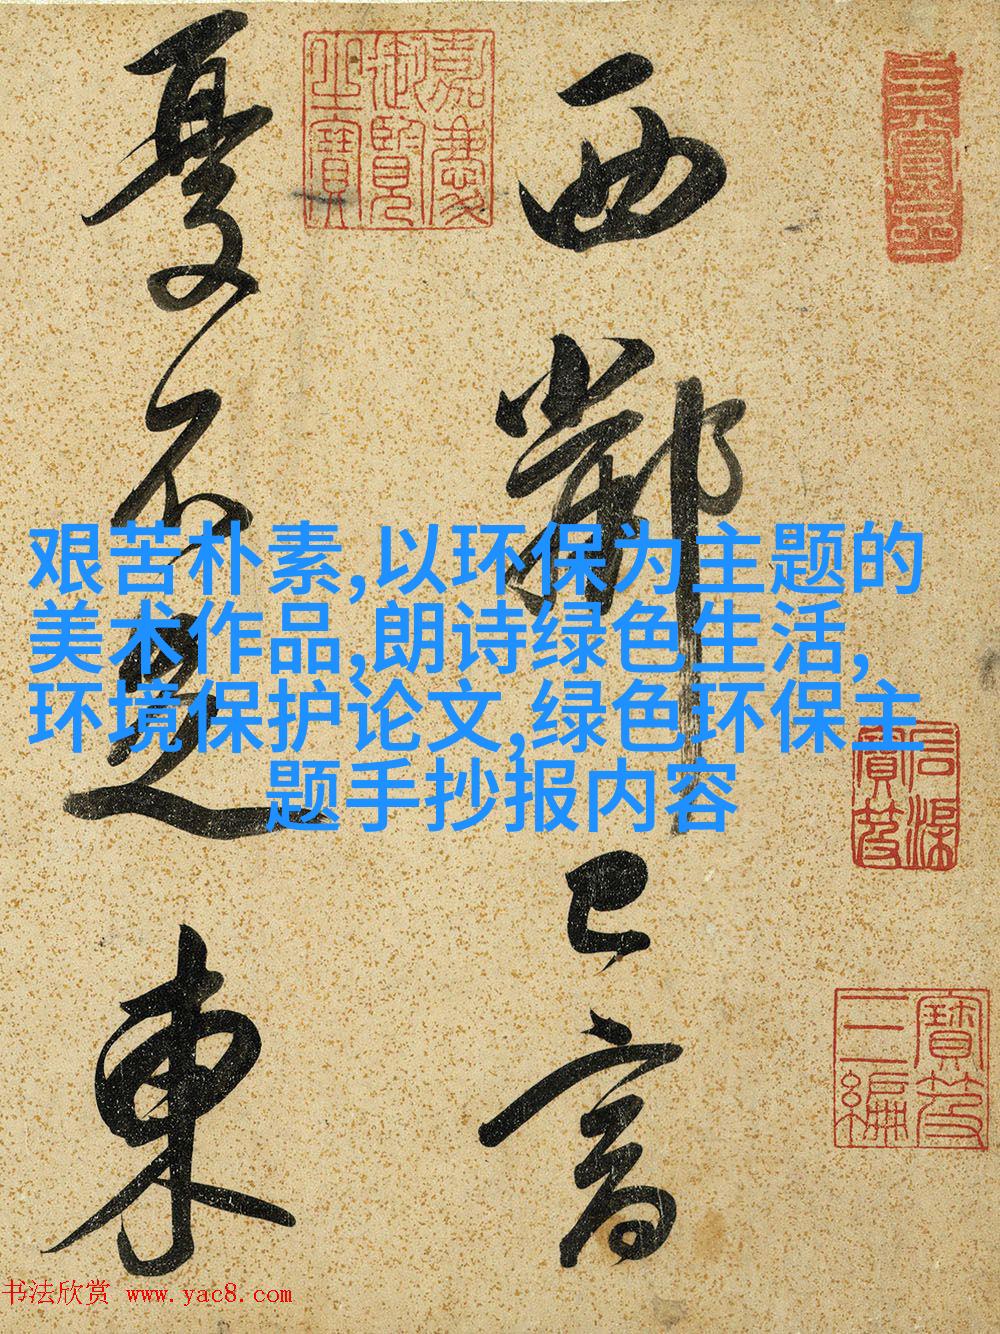 西鄰已富
憂不足東
嘉慶
御覽
之寶
艰苦朴素,以环保为主题的
美术作品,朗诗绿色生活,
环境保护论文,绿色环保主
题手抄报内容
石渠
寶笈
寶笈
三編
书法欣赏 www.yac8.com